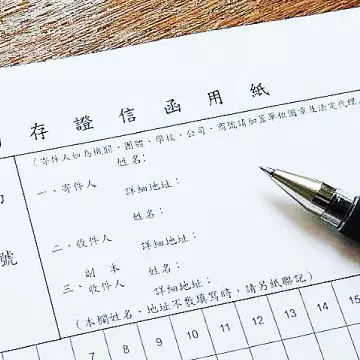 存證信函用紙
(寄件人如為機關、團體、學校、公司、商號請加蓋單位圖章及法定代理人
姓名:
一、寄件人 詳細地址:
姓名:
二、收件人 詳細地址:
副本 姓名:
三、收件人 詳細地址:
(本欄姓名、地址不敷填寫時,請另紙聯記)
號
7 8 9 10 11 12 13 14 15